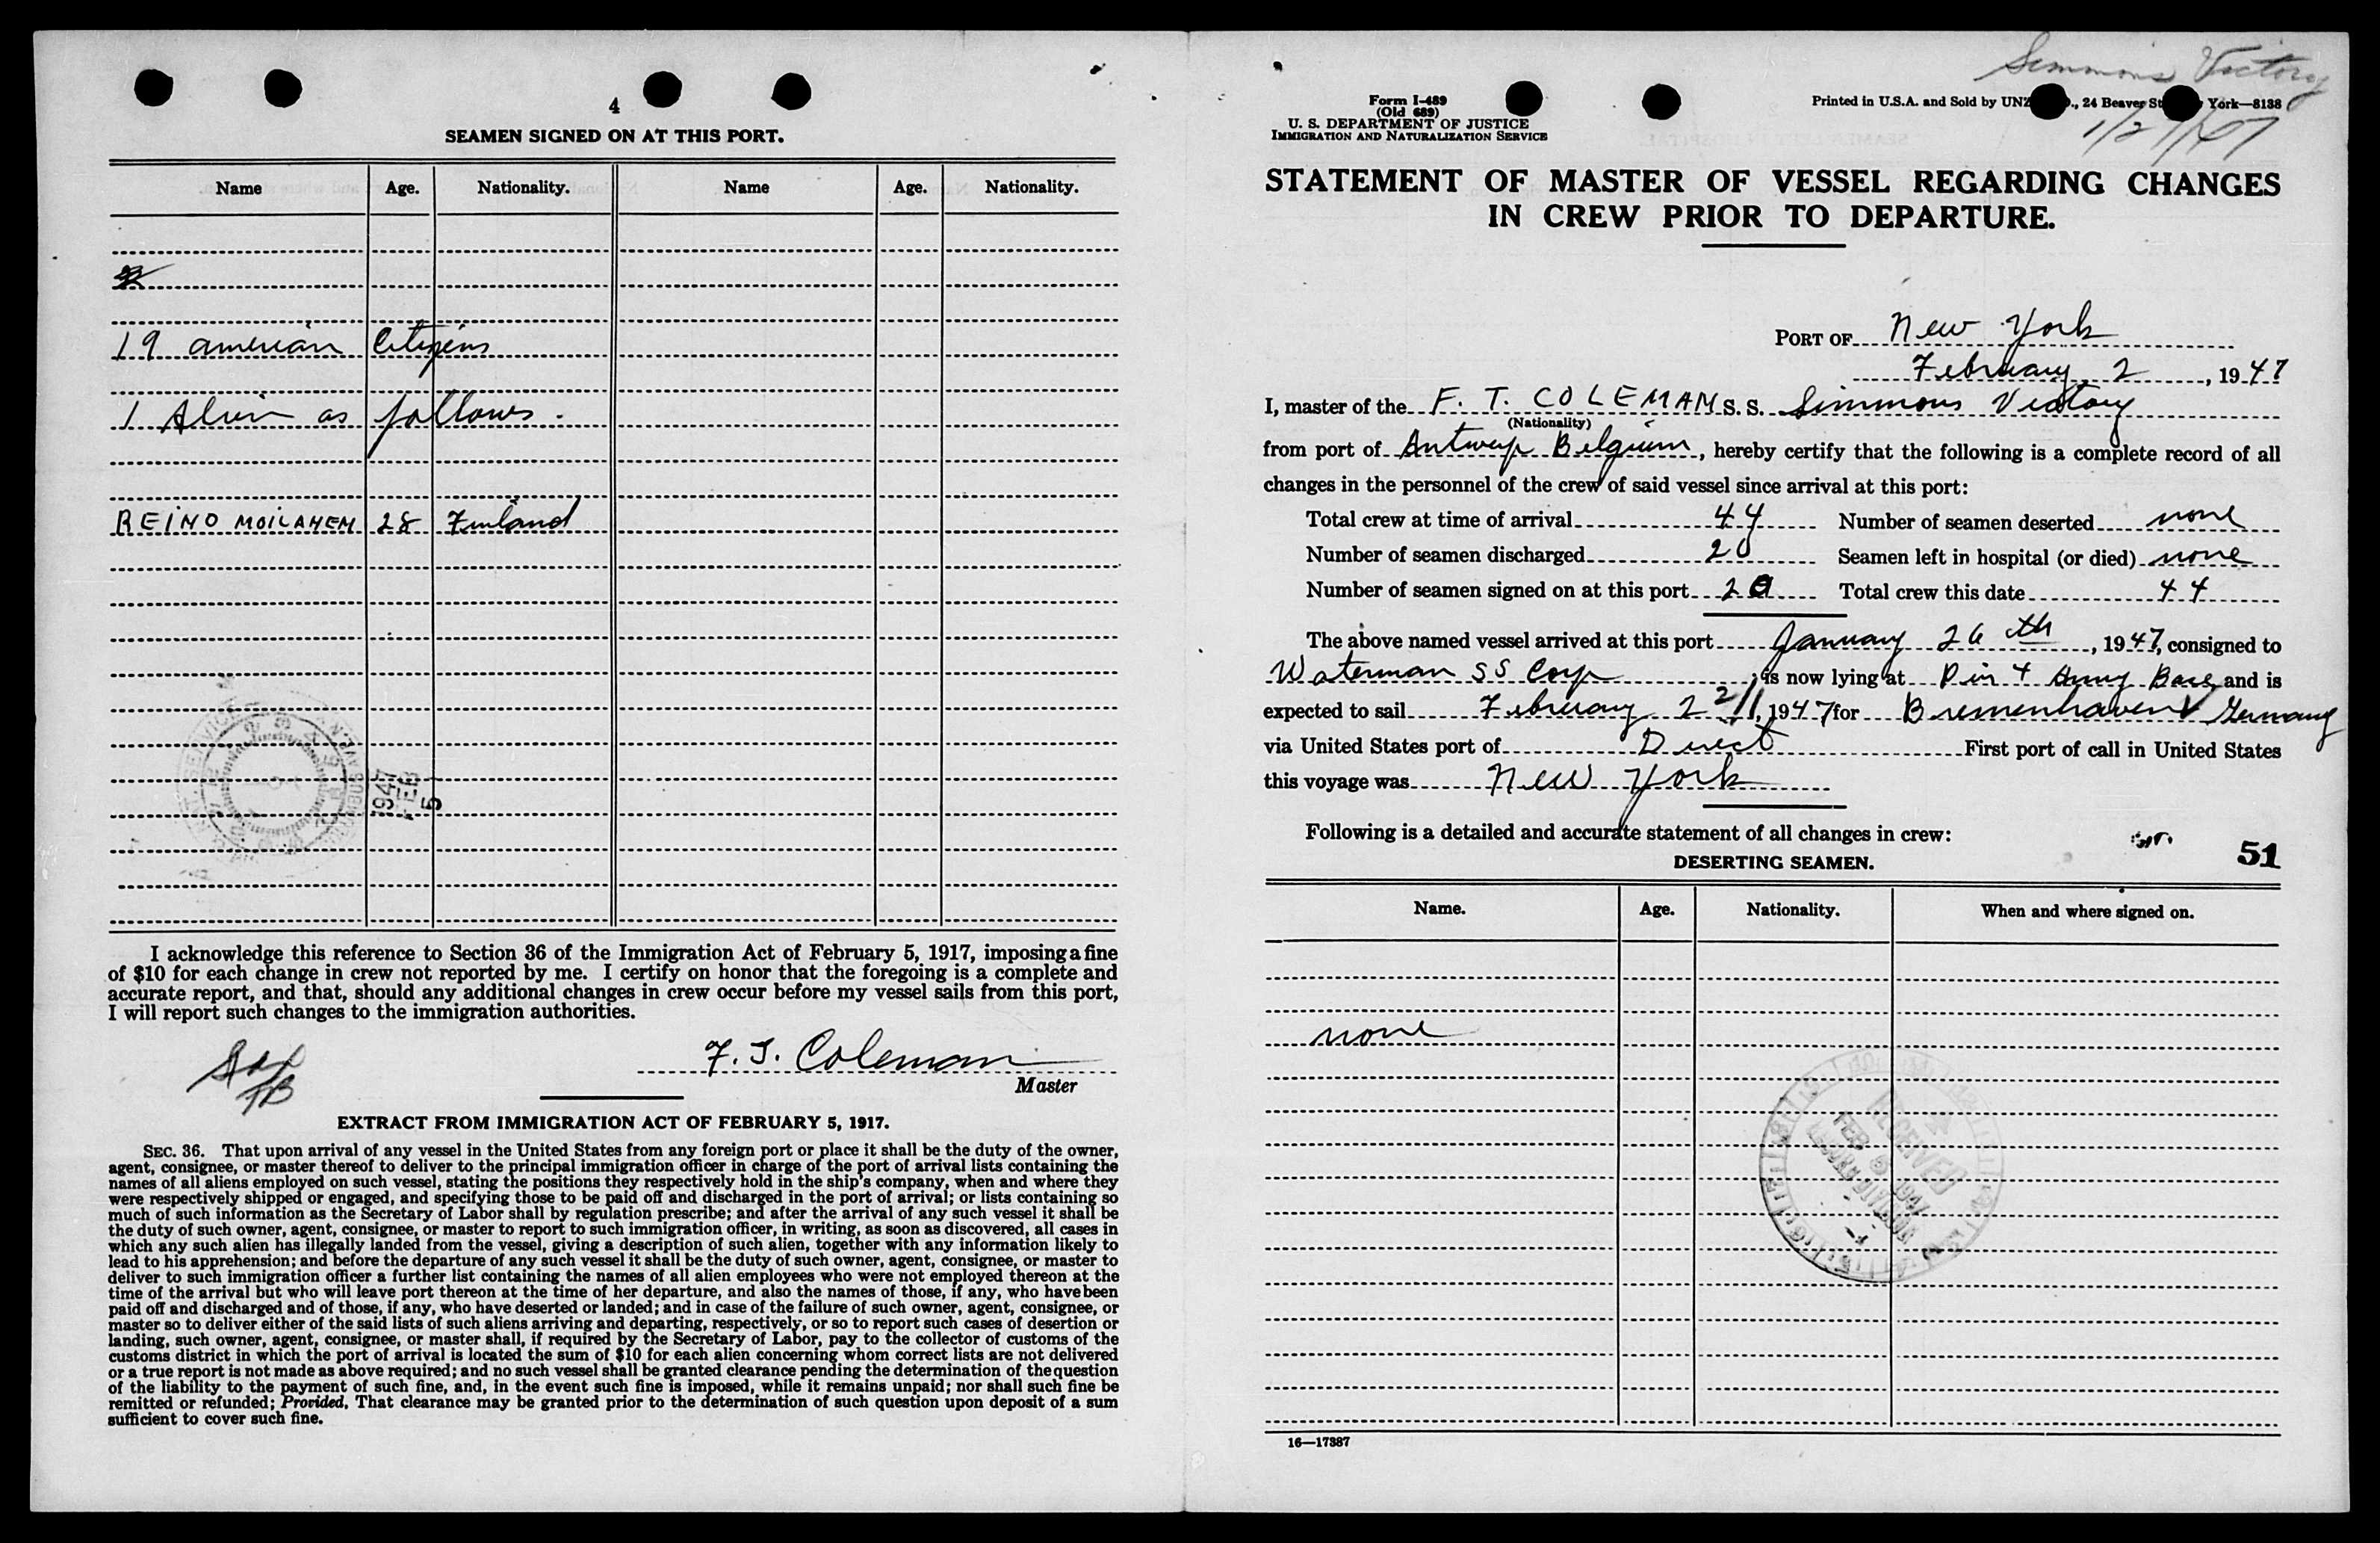 4
SEAMEN SIGNED ON AT THIS PORT.
Name Age. Nationality. Name Age. Nationality.
19 american Citizens
1 Alien as follows.
REINO MOILANEN 28 Finland
1947
FEB
5
I acknowledge this reference to Section 36 of the Immigration Act of February 5, 1917, imposing a fine
of $10 for each change in crew not reported by me. I certify on honor that the foregoing is a complete and
accurate report, and that, should any additional changes in crew occur before my vessel sails from this port,
I will report such changes to the immigration authorities.
F. T. Coleman
Master
EXTRACT FROM IMMIGRATION ACT OF FEBRUARY 5, 1917.
SEC. 36. That upon arrival of any vessel in the United States from any foreign port or place it shall be the duty of the owner,
agent, consignee, or master thereof to deliver to the principal immigration officer in charge of the port of arrival lists containing the
names of all aliens employed on such vessel, stating the positions they respectively hold in the ship's company, when and where they
were respectively shipped or engaged, and specifying those to be paid off and discharged in the port of arrival; or lists containing so
much of such information as the Secretary of Labor shall by regulation prescribe; and after the arrival of any such vessel it shall be
the duty of such owner, agent, consignee, or master to report to such immigration officer, in writing, as soon as discovered, all cases in
which any such alien has illegally landed from the vessel, giving a description of such alien, together with any information likely to
lead to his apprehension; and before the departure of any such vessel it shall be the duty of such owner, agent, consignee, or master to
deliver to such immigration officer a further list containing the names of all alien employees who were not employed thereon at the
time of the arrival but who will leave port thereon at the time of her departure, and also the names of those, if any, who have been
paid off and discharged and of those, if any, who have deserted or landed; and in case of the failure of such owner, agent, consignee, or
master so to deliver either of the said lists of such aliens arriving and departing, respectively, or so to report such cases of desertion or
landing, such owner, agent, consignee, or master shall, if required by the Secretary of Labor, pay to the collector of customs of the
customs district in which the port of arrival is located the sum of $10 for each alien concerning whom correct lists are not delivered
or a true report is not made as above required; and no such vessel shall be granted clearance pending the determination of the question
of the liability to the payment of such fine, and, in the event such fine is imposed, while it remains unpaid; nor shall such fine be
remitted or refunded; Provided, That clearance may be granted prior to the determination of such question upon deposit of a sum
sufficient to cover such fine.
Simmons Victory
Form I-489
(Old 689)
U. S. DEPARTMENT OF JUSTICE
IMMIGRATION AND NATURALIZATION SERVICE
Printed in U.S.A. and Sold by UNZ ., 24 Beaver St York—8138
1/27/47
STATEMENT OF MASTER OF VESSEL REGARDING CHANGES
IN CREW PRIOR TO DEPARTURE.
PORT OF New York
February 2, 1947
I, master of the F. T. COLEMAN S. S. Simmons Victory
(Nationality)
from port of Antwerp Belgium, hereby certify that the following is a complete record of all
changes in the personnel of the crew of said vessel since arrival at this port:
Total crew at time of arrival 44 Number of seamen deserted none
Number of seamen discharged 20 Seamen left in hospital (or died) none
Number of seamen signed on at this port 20 Total crew this date 44
The above named vessel arrived at this port January 26th, 1947, consigned to
Waterman SS Corp, is now lying at Pier 4 Army Base, and is
expected to sail February 2 2/1, 1947 for Bremenhaven Germany
via United States port of Direct First port of call in United States
this voyage was New York
Following is a detailed and accurate statement of all changes in crew:
51
DESERTING SEAMEN.
Name. Age. Nationality. When and where signed on.
none
RECEIVED
FEB 5 1947
16—17387